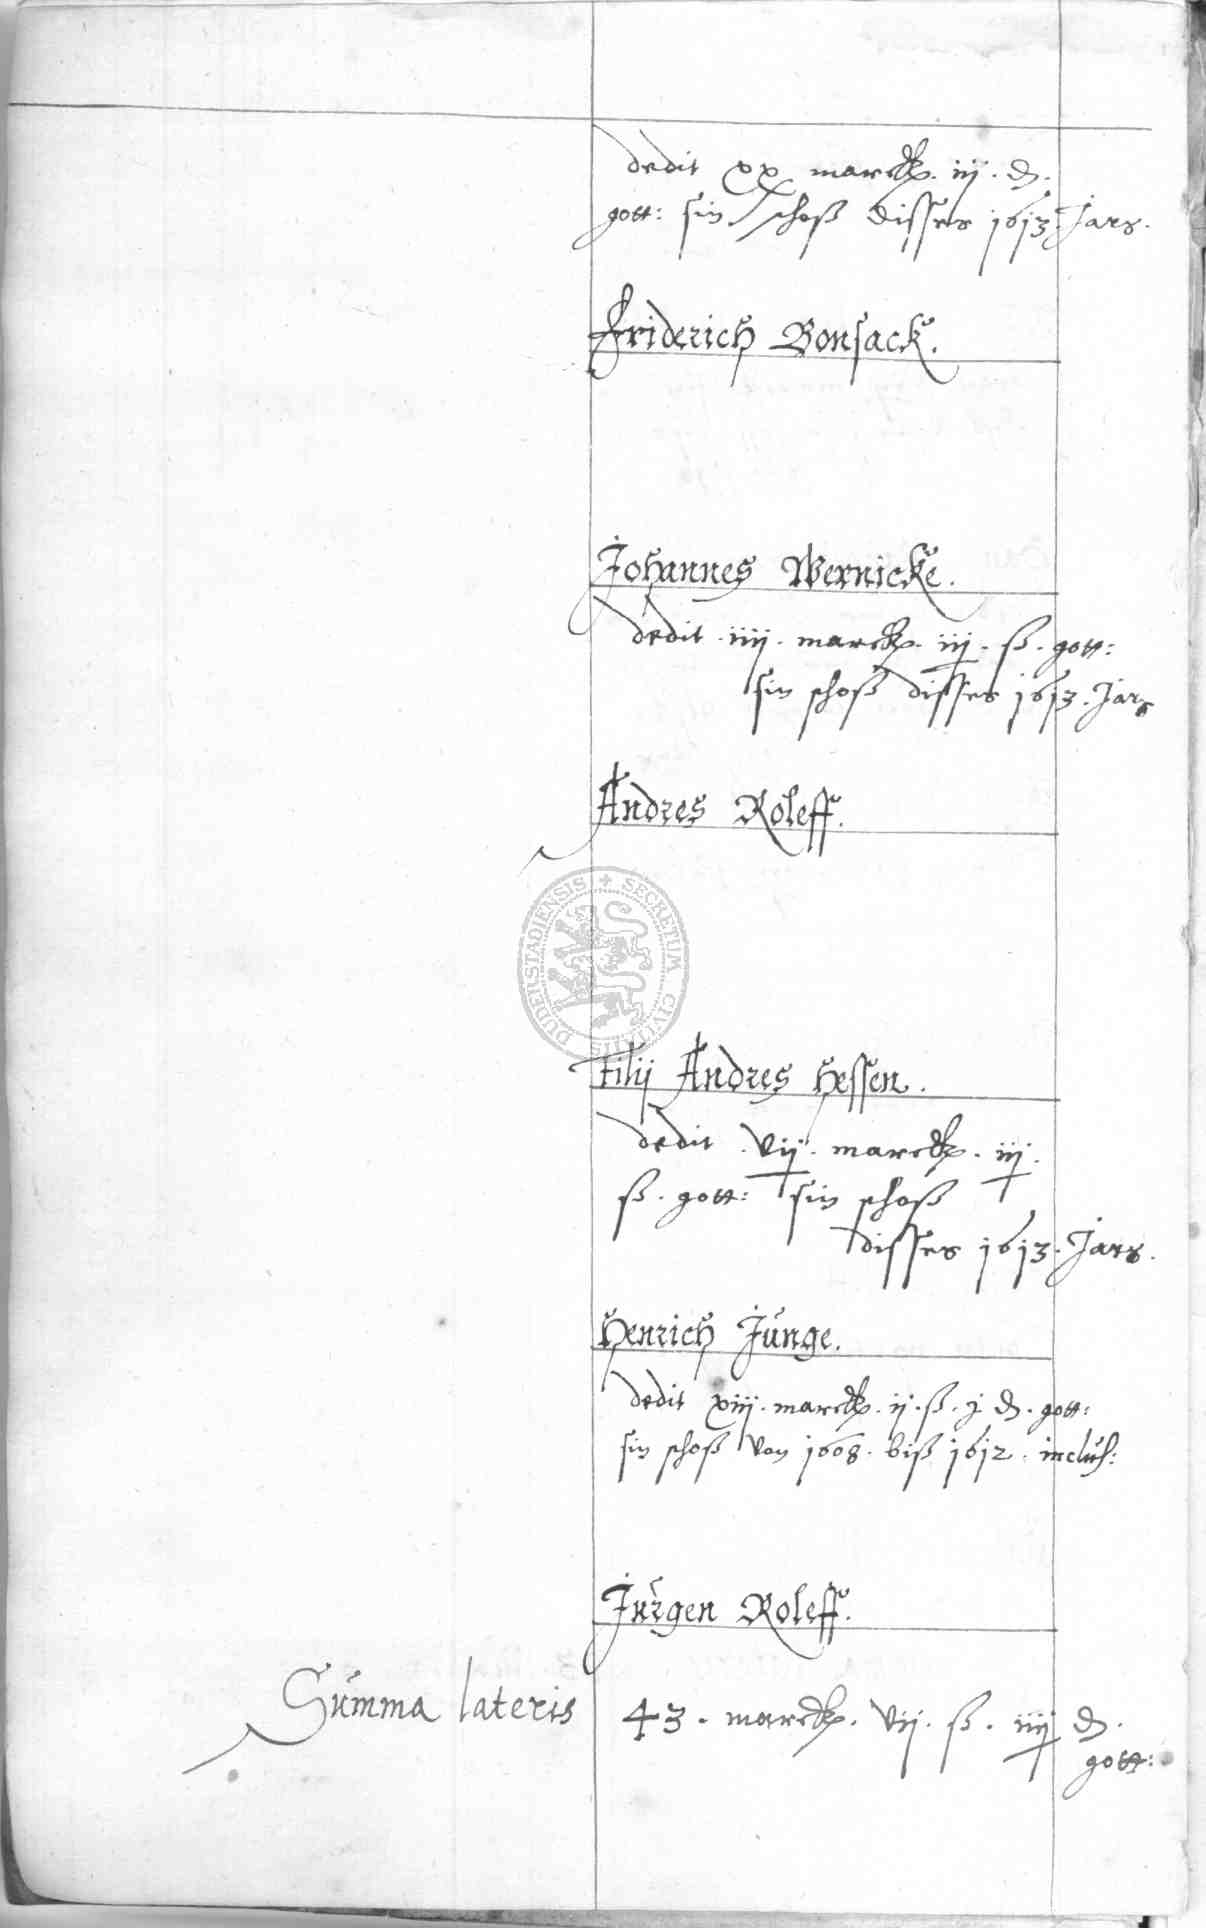 dedit xx marck. iij. d.
gott: sin schoß disses 1613. Jars.
Friderich Bonsack.
Johannes Wernicke.
dedit. iiij. marck. iij. ß. gott:
sin schoß disses 1613. Jars
Andres Roleff.
SECRETUM CIVITATIS DUDERSTADIENSIS
Filij Andres Hessen.
dedit. vij. marck. iij.
ß. gott: sin schoß
disses 1613. Jars.
Henrich Junge.
dedit xiij. marck. ij. ß. j d. gott:
sin schoß von 1608. biß 1612. inclus:
Jurgen Roleff.
Summa lateris 43. marck. vij. ß. iiij d.
gott: